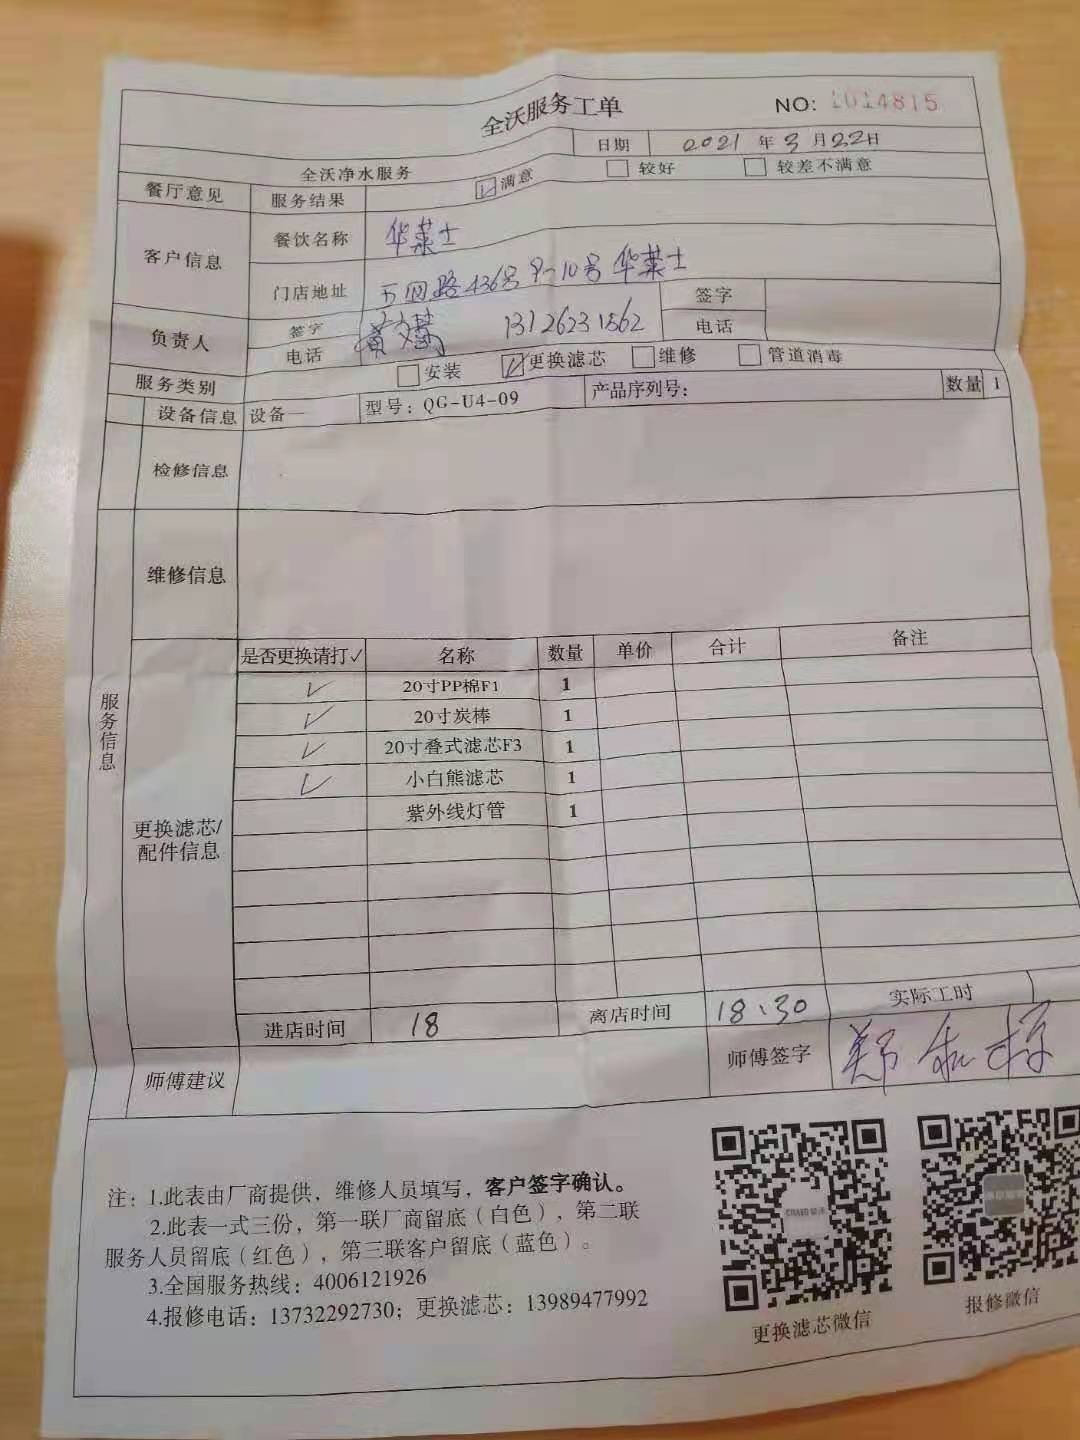 全沃服务工单
NO: 1014815
日期 2021年3月22日
全沃净水服务
餐厅意见 服务结果 ☑满意 □较好 □较差不满意
客户信息 餐饮名称 华莱士
门店地址 万园路436号9-10号华莱士
负责人 签字 电话 13126231562 签字 电话
服务类别 □安装 ☑更换滤芯 □维修 □管道消毒
设备信息 设备一 型号：QG-U4-09 产品序列号： 数量 1
检修信息
维修信息
服务信息
更换滤芯/
配件信息
是否更换请打✓ 名称 数量 单价 合计 备注
✓ 20寸PP棉F1 1
✓ 20寸炭棒 1
✓ 20寸叠式滤芯F3 1
✓ 小白熊滤芯 1
紫外线灯管 1
进店时间 18 离店时间 18、30 实际工时
师傅建议 师傅签字
注：1.此表由厂商提供，维修人员填写，客户签字确认。
2.此表一式三份，第一联厂商留底（白色），第二联
服务人员留底（红色），第三联客户留底（蓝色）。
3.全国服务热线：4006121926
4.报修电话：13732292730；更换滤芯：13989477992
更换滤芯微信
报修微信